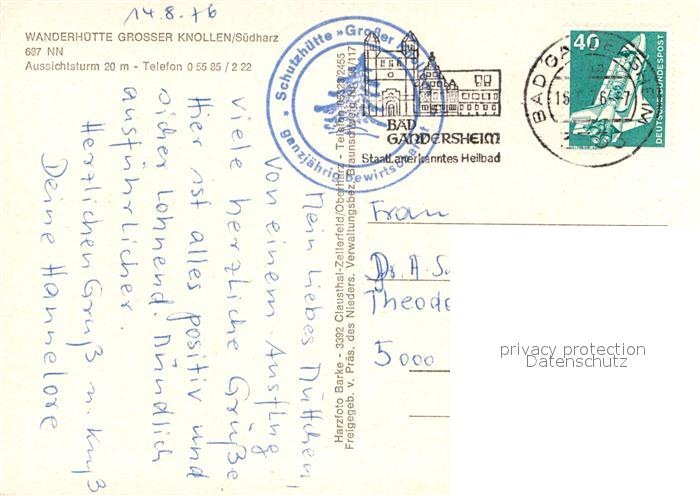 14.8.76
WANDERHÜTTE GROSSER KNOLLEN/Südharz
687 NN
Aussichtsturm 20 m - Telefon 0 55 85 / 2 22
Schutzhütte »Großer
ganzjährig bewirtschaftet
BAD
GANDERSHEIM
Staatl. anerkanntes Heilbad
BAD GANDERSHEIM
40
DEUTSCHE BUNDESPOST
Mein liebes Muttchen,
von einem Ausflug
viele herzliche Grüße
Hier ist alles positiv und
sicher lohnend. Mündlich
ausführlicher.
Herzlichen Gruß u. Kuß
Deine Hannelore
Harzfoto Barke - 3392 Clausthal-Zellerfeld/Oberharz - Telefon
Freigegeb. v. Präs. des Nieders. Verwaltungsbez. Braunschweig
Frau
Dr. A.
Theodo
5000
privacy protection
Datenschutz